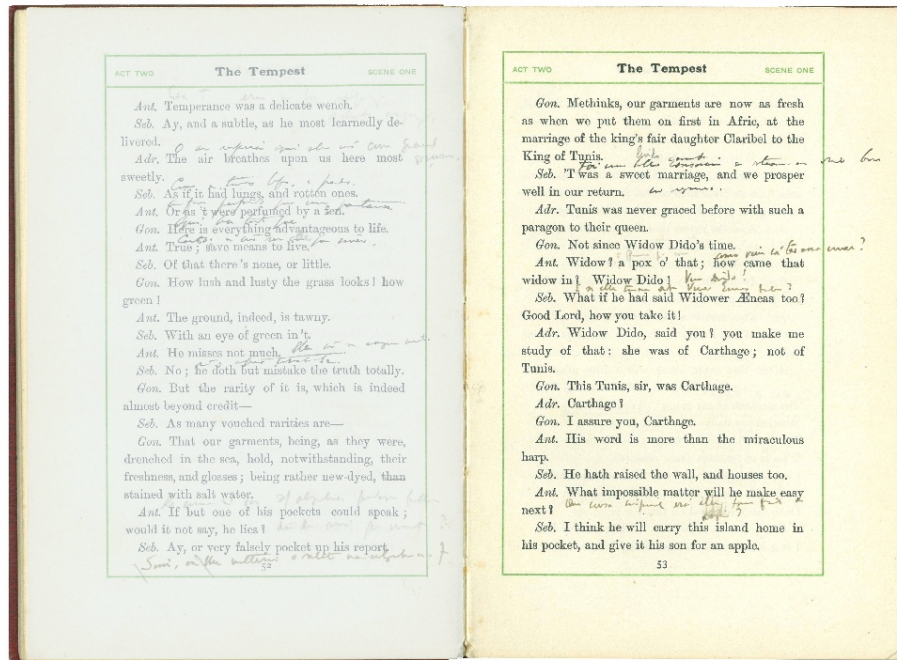 ACT TWO The Tempest SCENE ONE
Ant. Temperance was a delicate wench.
Seb. Ay, and a subtle, as he most learnedly de-
livered.
Adr. The air breathes upon us here most
sweetly.
Seb. As if it had lungs, and rotten ones.
Ant. Or as 't were perfumed by a fen.
Gon. Here is everything advantageous to life.
Ant. True; save means to live.
Seb. Of that there's none, or little.
Gon. How lush and lusty the grass looks! how
green!
Ant. The ground, indeed, is tawny.
Seb. With an eye of green in't.
Ant. He misses not much.
Seb. No; he doth but mistake the truth totally.
Gon. But the rarity of it is, which is indeed
almost beyond credit—
Seb. As many vouched rarities are—
Gon. That our garments, being, as they were,
drenched in the sea, hold, notwithstanding, their
freshness, and glosses; being rather new-dyed, than
stained with salt water.
Ant. If but one of his pockets could speak;
would it not say, he lies?
Seb. Ay, or very falsely pocket up his report.
52
ACT TWO The Tempest SCENE ONE
Gon. Methinks, our garments are now as fresh
as when we put them on first in Afric, at the
marriage of the king's fair daughter Claribel to the
King of Tunis.
Seb. 'T was a sweet marriage, and we prosper
well in our return.
Adr. Tunis was never graced before with such a
paragon to their queen.
Gon. Not since Widow Dido's time.
Ant. Widow? a pox o' that; how came that
widow in? Widow Dido!
Seb. What if he had said Widower Æneas too?
Good Lord, how you take it!
Adr. Widow Dido, said you? you make me
study of that: she was of Carthage; not of
Tunis.
Gon. This Tunis, sir, was Carthage.
Adr. Carthage?
Gon. I assure you, Carthage.
Ant. His word is more than the miraculous
harp.
Seb. He hath raised the wall, and houses too.
Ant. What impossible matter will he make easy
next?
Seb. I think he will carry this island home in
his pocket, and give it his son for an apple.
53